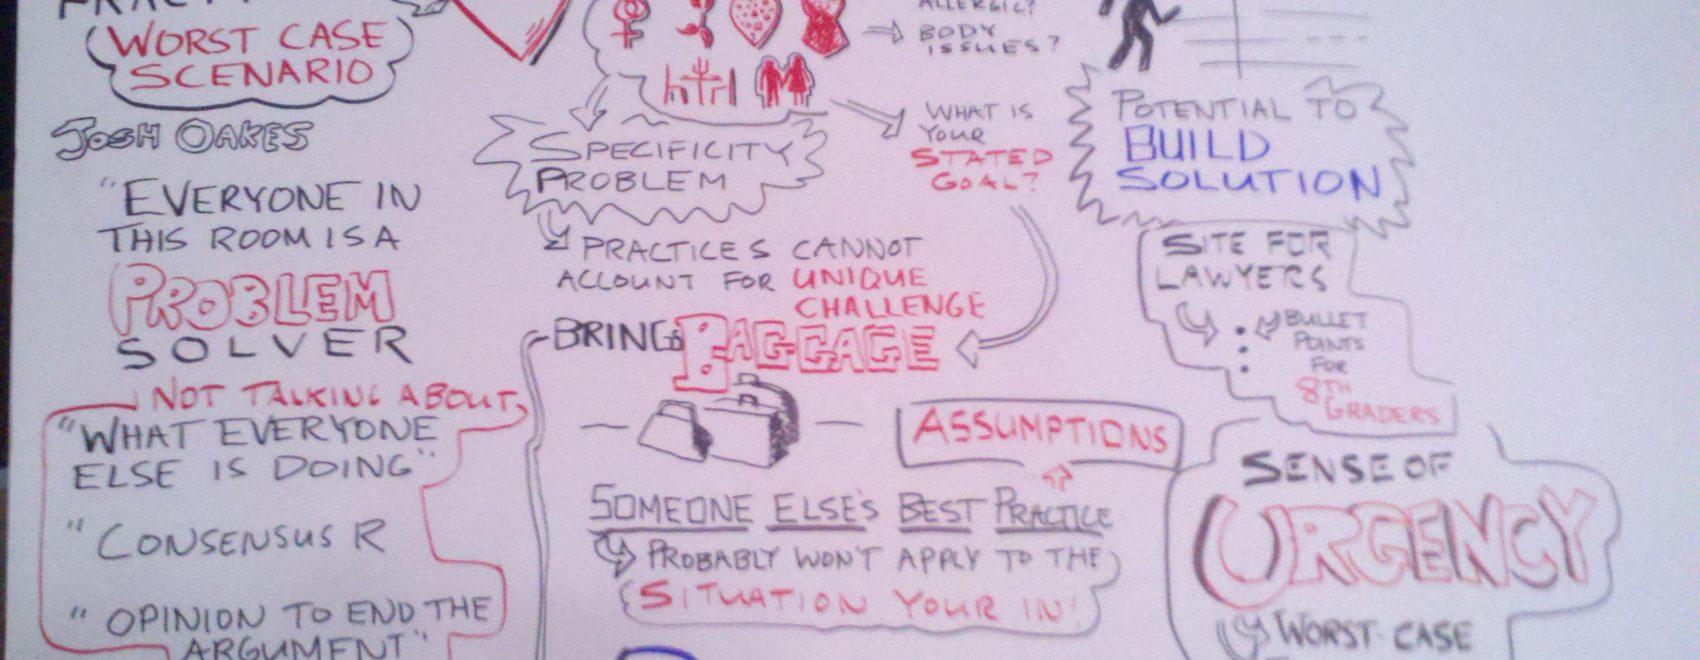 WORST CASE
SCENARIO
JOSH OAKES
"EVERYONE IN
THIS ROOM IS A
PROBLEM
SOLVER
NOT TALKING ABOUT
"WHAT EVERYONE
ELSE IS DOING"
"CONSENSUS R
"OPINION TO END THE
ARGUMENT"
ALLERGIC?
BODY
ISSUES?
SPECIFICITY
PROBLEM
WHAT IS
YOUR
STATED
GOAL?
PRACTICES CANNOT
ACCOUNT FOR UNIQUE
CHALLENGE
BRINGS BAGGAGE
ASSUMPTIONS
SOMEONE ELSE'S BEST PRACTICE
PROBABLY WON'T APPLY TO THE
SITUATION YOUR IN!
POTENTIAL TO
BUILD
SOLUTION
SITE FOR
LAWYERS
BULLET
POINTS
FOR
8TH
GRADERS
SENSE OF
URGENCY
WORST CASE